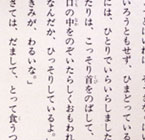 いろうともせず、ひまどってい
ひとりでいらいらしました
たりは、こっそり首をのばして、
の中をのぞいたらしておもれ
なんだか、ひっそりしているよ。
きみが、わるいな。」
さては、だまして、とって食うつ